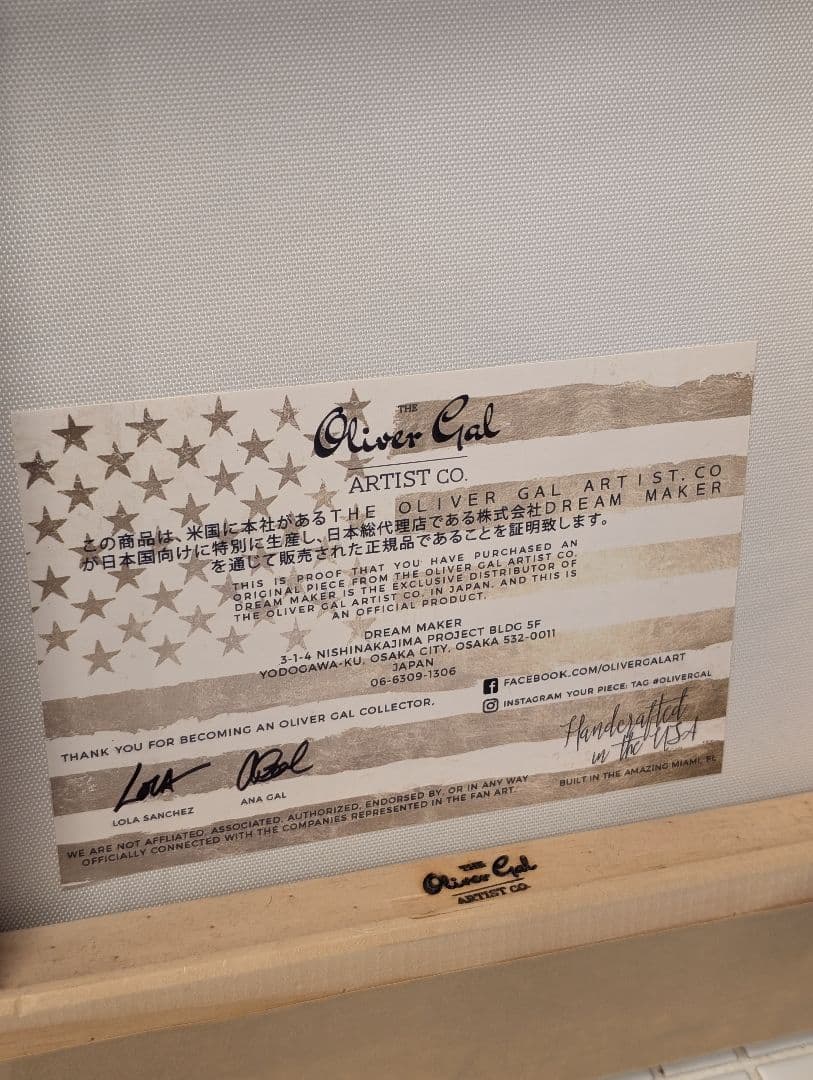 THE
Oliver Gal
ARTIST CO.
この商品は、米国に本社があるTHE OLIVER GAL ARTIST.CO
が日本国向けに特別に生産し、日本総代理店である株式会社DREAM MAKER
を通じて販売された正規品であることを証明致します。
THIS IS PROOF THAT YOU HAVE PURCHASED AN
ORIGINAL PIECE FROM THE OLIVER GAL ARTIST CO.
DREAM MAKER IS THE EXCLUSIVE DISTRIBUTOR OF
THE OLIVER GAL ARTIST CO. IN JAPAN. AND THIS IS
AN OFFICIAL PRODUCT.
DREAM MAKER
3-1-4 NISHINAKAJIMA PROJECT BLDG 5F
YODOGAWA-KU, OSAKA CITY, OSAKA 532-0011
JAPAN
06-6309-1306
FACEBOOK.COM/OLIVERGALART
INSTAGRAM YOUR PIECE: TAG #OLIVERGAL
THANK YOU FOR BECOMING AN OLIVER GAL COLLECTOR.
Handcrafted
in the USA
BUILT IN THE AMAZING MIAMI, FL
LOLA
LOLA SANCHEZ
ANA GAL
WE ARE NOT AFFLIATED, ASSOCIATED, AUTHORIZED, ENDORSED BY, OR IN ANY WAY
OFFICIALLY CONNECTED WITH THE COMPANIES REPRESENTED IN THE FAN ART.
THE
Oliver Gal
ARTIST CO.